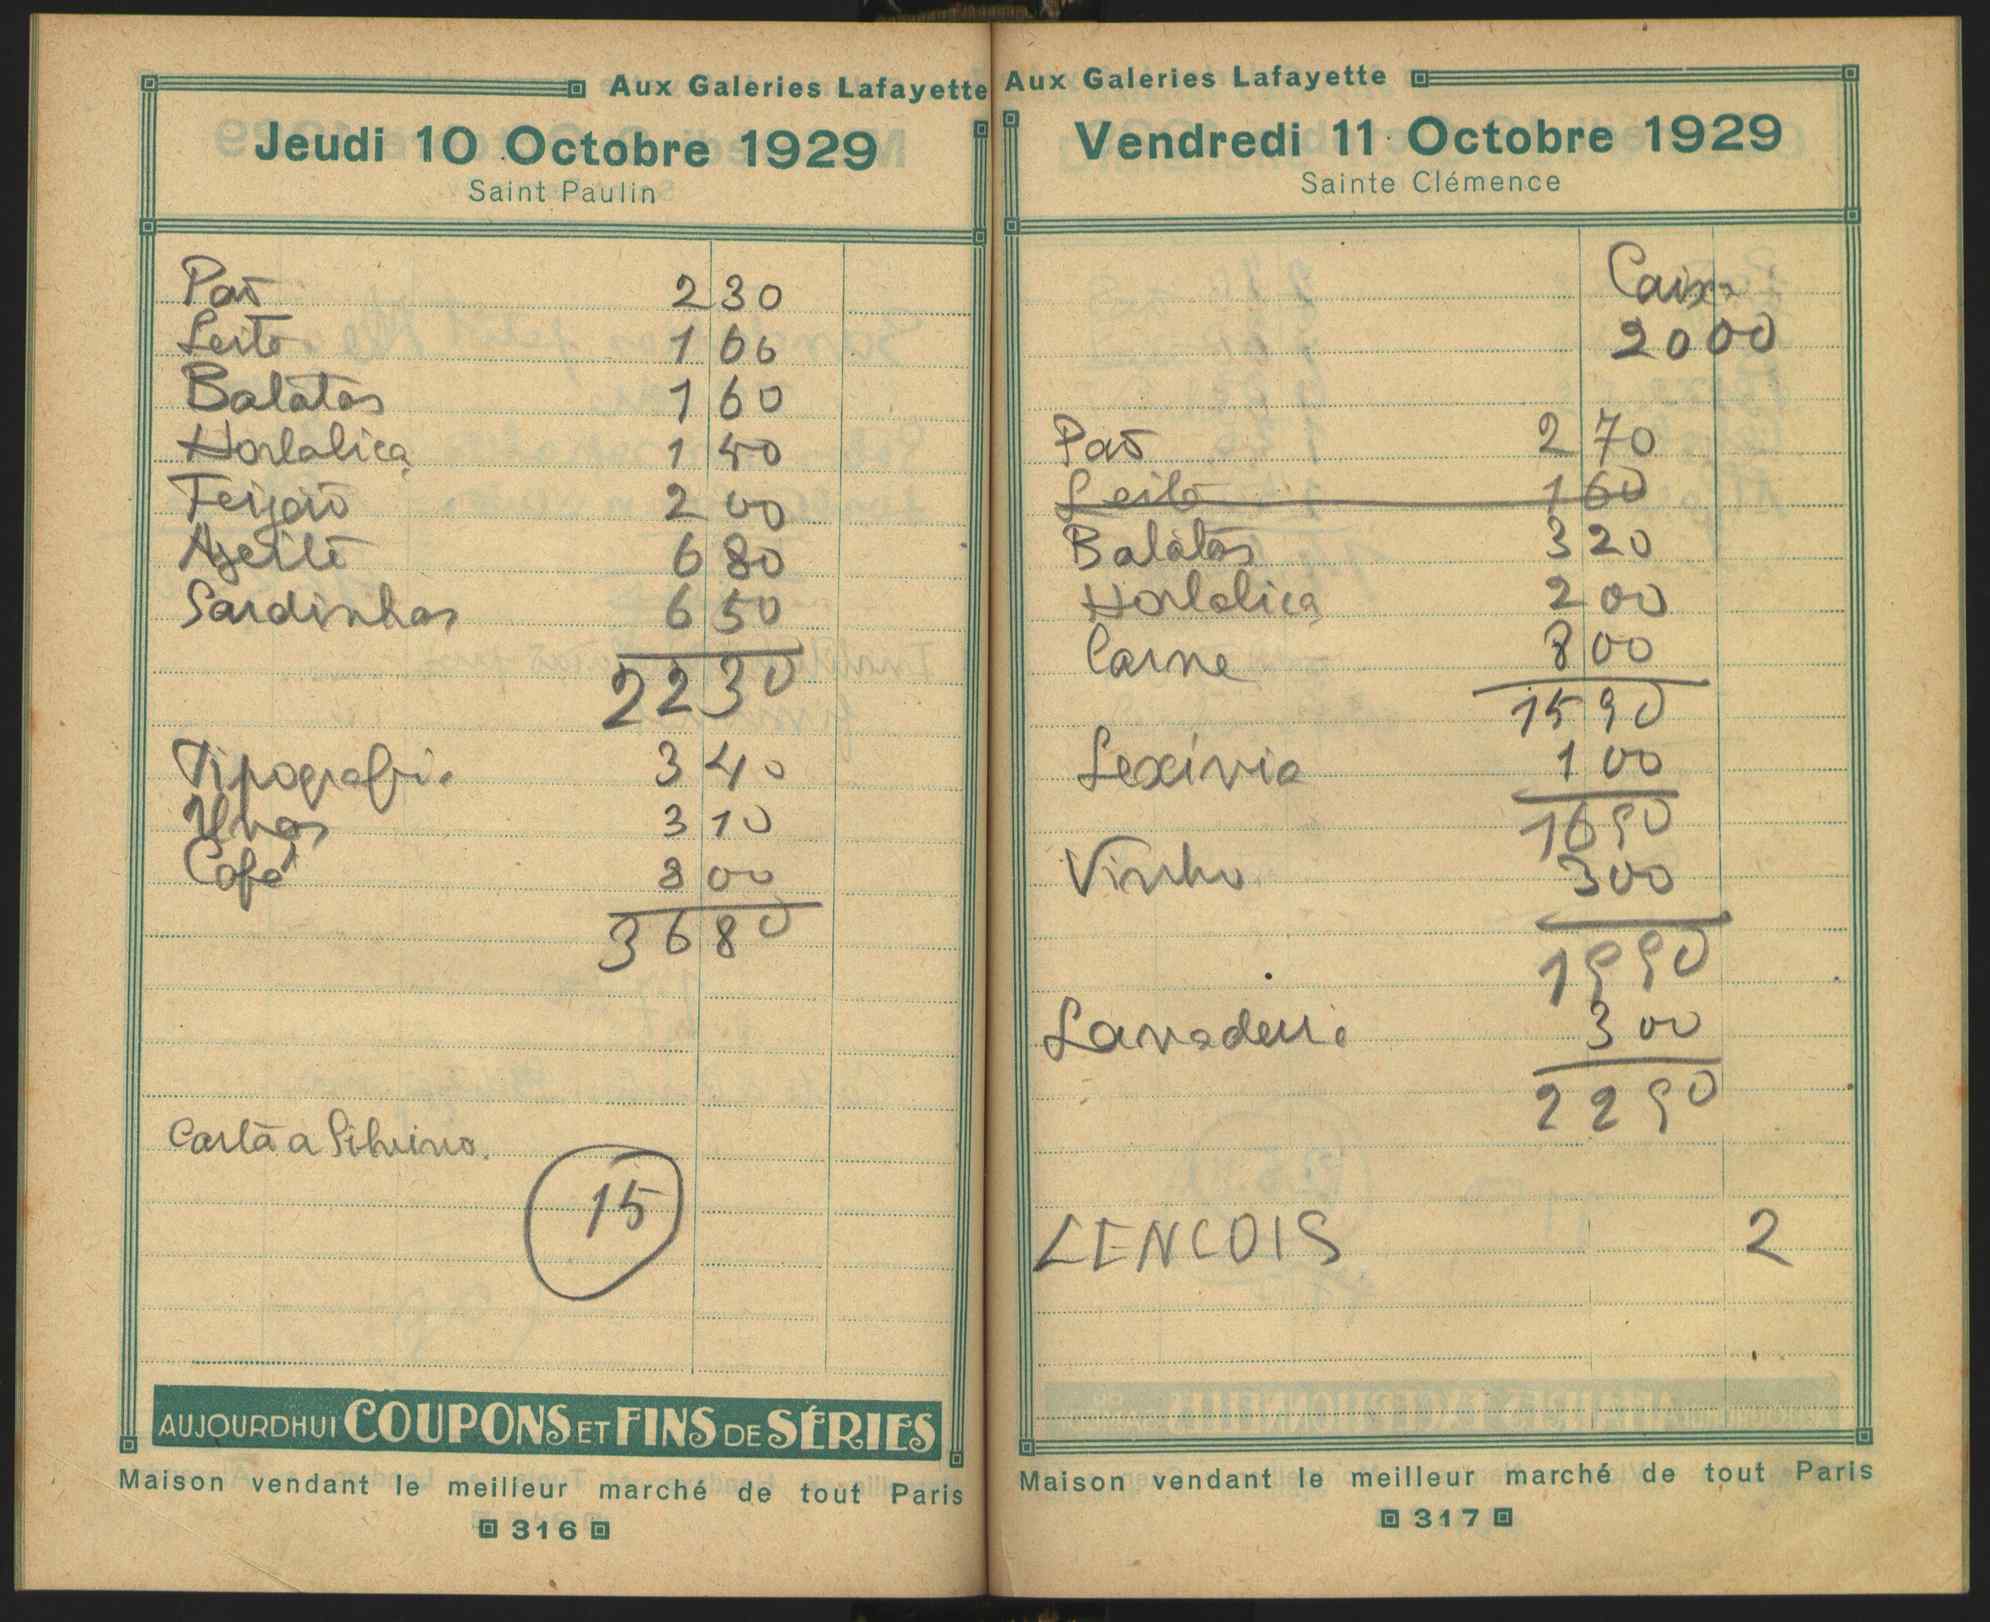 Aux Galeries Lafayette
Jeudi 10 Octobre 1929
Saint Paulin
Paõ 2 30
Leite 1 60
Batatas 1 60
Hortaliça 1 40
Feijaõ 2 00
Azeite 6 80
Sardinhas 6 50
22 30
Tipografia 3 40
Uvas 3 10
Café 8 00
36 80
Carta a Silvino.
15
AUJOURDHUI COUPONS ET FINS DE SÉRIES
Maison vendant le meilleur marché de tout Paris
316
Aux Galeries Lafayette
Vendredi 11 Octobre 1929
Sainte Clémence
Caixa
20 00
Paõ 2 70
Leite 1 60
Batatas 3 20
Hortaliça 2 00
Carne 8 00
15 90
Lexívia 1 00
16 90
Vinho 3 00
19 90
Lavadeira 3 00
22 90
LENCOIS 2
Maison vendant le meilleur marché de tout Paris
317